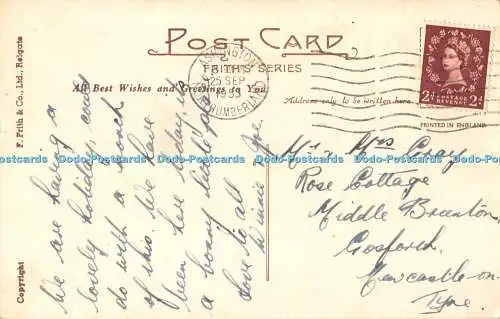 POST CARD
FRITH'S SERIES
All Best Wishes and Greetings to You
Address only to be written here
PRINTED IN ENGLAND
F. Frith & Co., Ltd., Reigate
Copyright
ASHINGTON
25 SEP
1955
NORTHUMBERLAND
POSTAGE
REVENUE
2½d 2½d
We are having a
lovely holiday, could
do with a month
of this. We have
been here to-day, it's
a bonny little place
Love to all
Winnie & Joe.
Mr & Mrs Gray
Rose Cottage
Middle Brunton
Gosforth
Newcastle-on-
Tyne.
Postcards Postcards Postcards Postcards Postcards Postcards Postcards Postcards Postcards